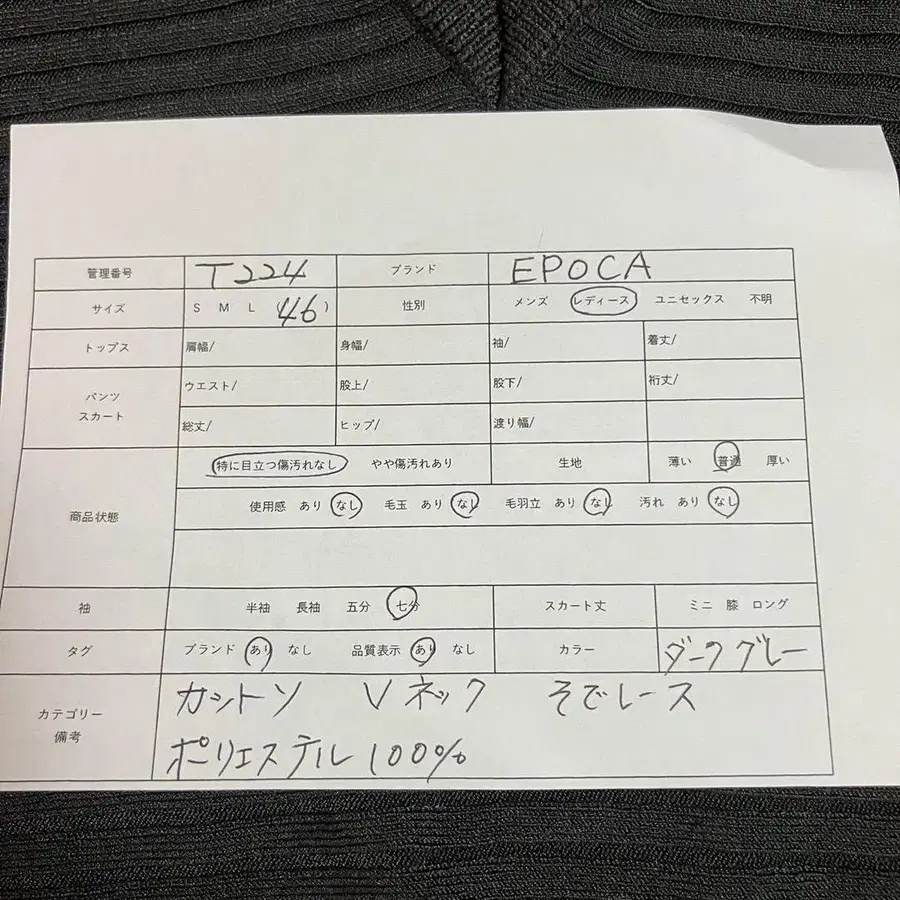 管理番号 T224 ブランド EPOCA
サイズ S M L (46) 性別 メンズ レディース ユニセックス 不明
トップス 肩幅/ 身幅/ 袖/ 着丈/
パンツ スカート ウエスト/ 股上/ 股下/ 裄丈/
総丈/ ヒップ/ 渡り幅/
商品状態 特に目立つ傷汚れなし やや傷汚れあり 生地 薄い 普通 厚い
使用感 あり なし 毛玉 あり なし 毛羽立 あり なし 汚れ あり なし
袖 半袖 長袖 五分 七分 スカート丈 ミニ 膝 ロング
タグ ブランド あり なし 品質表示 あり なし カラー ダークグレー
カテゴリー 備考 カットソ Vネック そでレース
ポリエステル100%